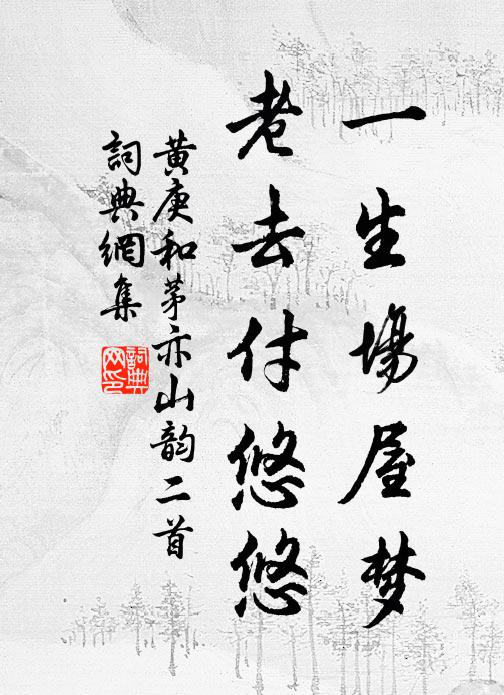 一生場屋梦
老去付悠悠
黄庚和茅亦山韵二首
詞典網集
詞典網印